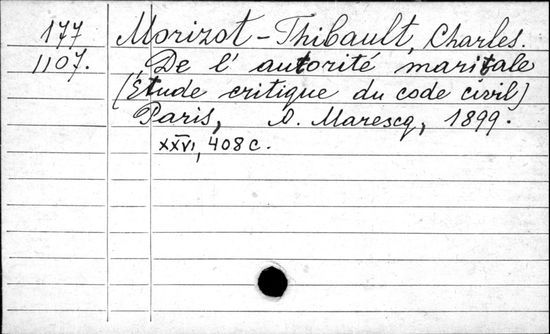 177 Morizot-Thibault, Charles.
1107. De l' autorité maritale
(Étude critique du code civil)
Paris, A. Marescq, 1899.
XXVI, 408 c.